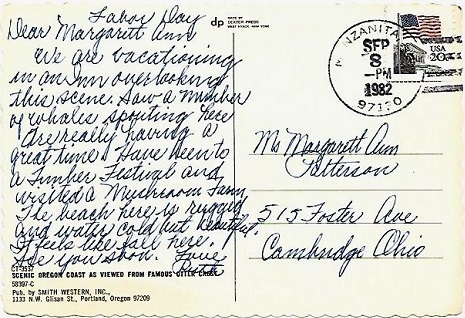 Labor Day
Dear Margarett Ann
We are vacationing
in an Inn overlooking
this scene. Saw a number
of whales spouting here
Are really having a
great time. Have been to
a Timber Festival and
visited a Mushroom Farm
The beach here is rugged
and water cold but beautiful.
It feels like fall here.
See you soon. Love
Ruth
CT-3537
SCENIC OREGON COAST AS VIEWED FROM FAMOUS OTTER CREST
58397-C
Pub. by SMITH WESTERN, INC.,
1133 N.W. Glisan St., Portland, Oregon 97209
dp
MADE BY
DEXTER PRESS
WEST NYACK, NEW YORK
MANZANITA
SEP
8
-PM
1982
97130
USA
20c
Ms Margarett Ann
Patterson
515 Foster Ave
Cambridge Ohio